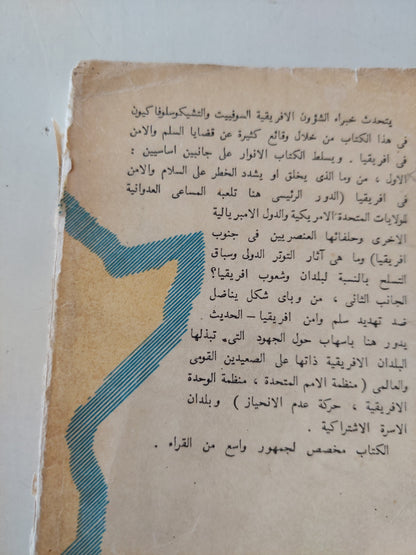 يتحدث خبراء الشؤون الافريقية السوفييت والتشيكوسلوفاكيون
فى هذا الكتاب من خلال وقائع كثيرة عن قضايا السلم والامن
فى افريقيا . ويسلط الكتاب الانوار على جانبين اساسيين :
الاول ، من وما الذى يخلق او يشدد الخطر على السلام والامن
فى افريقيا (الدور الرئيسى هنا تلعبه المساعى العدوانية
للولايات المتحدة الامريكية والدول الامبريالية
الاخرى وحلفائها العنصريين فى جنوب
افريقيا) وما هى آثار التوتر الدولى وسباق
التسلح بالنسبة لبلدان وشعوب افريقيا؟
الجانب الثانى ، من وباى شكل يناضل
ضد تهديد سلم وامن افريقيا – الحديث
يدور هنا باسهاب حول الجهود التى تبذلها
البلدان الافريقية ذاتها على الصعيدين القومى
والعالمى ( منظمة الامم المتحدة ، منظمة الوحدة
الافريقية ، حركة عدم الانحياز ) وبلدان
الاسرة الاشتراكية .
الكتاب مخصص لجمهور واسع من القراء .